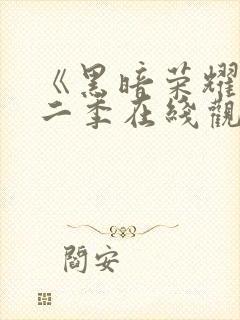 《黑暗荣耀
二季在线觀
閻安